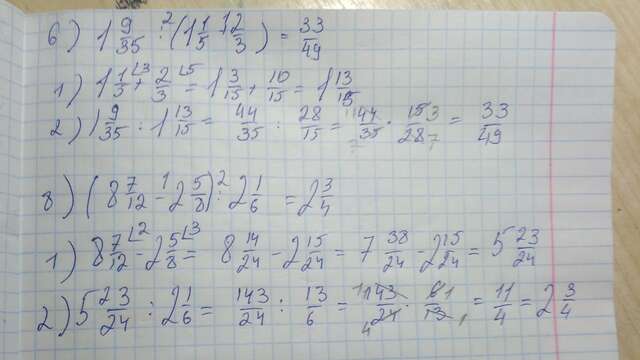 6) 1 9/35 : (1 1/5 + 2/3) = 33/49
1) 1 1/5 + 2/3 = 1 3/15 + 10/15 = 1 13/15
2) 1 9/35 : 1 13/15 = 44/35 : 28/15 = 44/35 · 15/28 = 33/49
8) (8 7/12 - 2 5/8) : 2 1/6 = 2 3/4
1) 8 7/12 - 2 5/8 = 8 14/24 - 2 15/24 = 7 38/24 - 2 15/24 = 5 23/24
2) 5 23/24 : 2 1/6 = 143/24 : 13/6 = 143/24 · 6/13 = 11/4 = 2 3/4